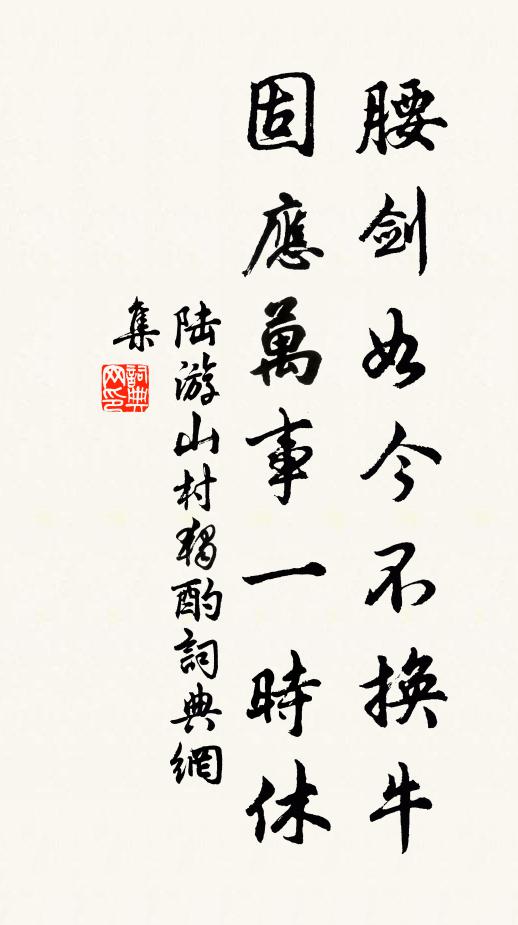 腰剑如今不換牛
固應萬事一時休
陆游山村獨酌詞典網
集
詞典网印